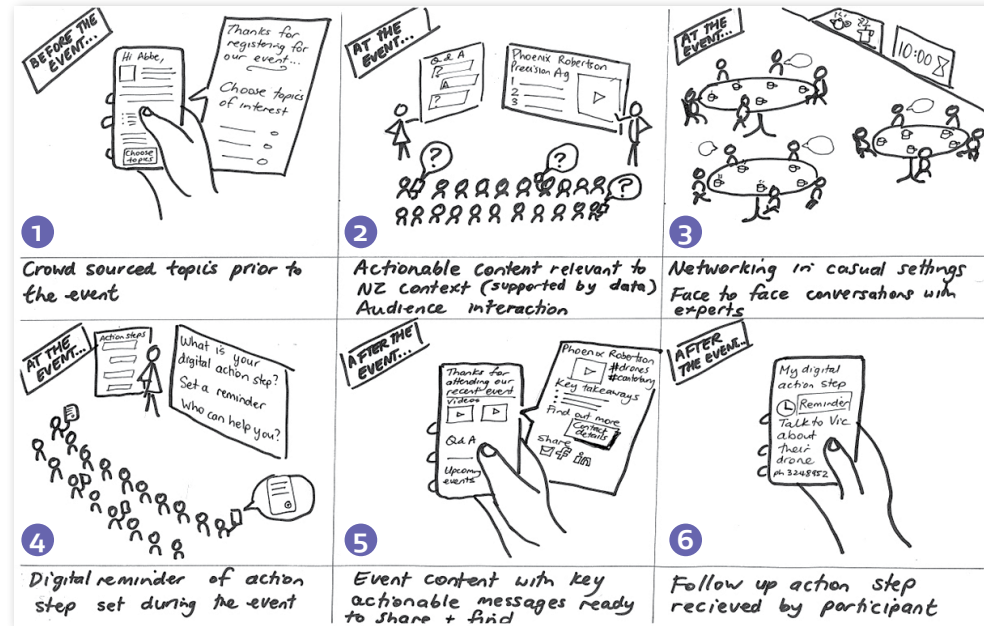 BEFORE THE
EVENT...
Hi Abbe,
Choose
topics
Thanks for
registering for
our event...
Choose topics
of interest
1
Crowd sourced topics prior to
the event
AT THE
EVENT...
Q & A
?
A
?
Phoenix Robertson
Precision Ag
1
2
3
?
?
?
2
Actionable content relevant to
NZ context (supported by data)
Audience interaction
AT THE
EVENT...
10:00
3
Networking in casual settings
Face to face conversations with
experts
AT THE
EVENT...
Action steps
What is your
digital action step?
Set a reminder
Who can help you?
4
Digital reminder of action
step set during the event
AFTER THE
EVENT...
Thanks for
attending our
recent event
Videos
Q & A
Upcoming
events
Phoenix Robertson
#drones
#cantabury
Key takeaways
Find out more
Contact
details
Share
f in
5
Event content with key
actionable messages ready
to share + find
AFTER
THE EVENT...
My digital
action step
Reminder
Talk to Vic
about
their
drone
ph 3248952
6
Follow up action step
recieved by participant